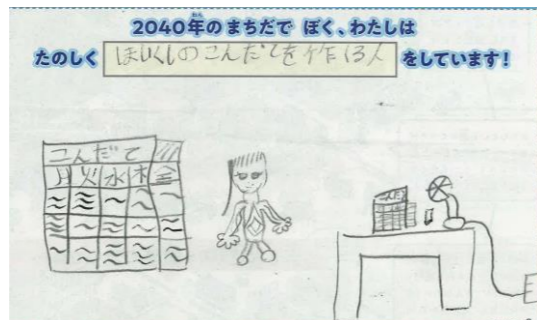 2040年のまちだで ぼく、わたしは
たのしく ほいくしのこんだてを作る人 をしています!
こんだて
月 火 水 木 金